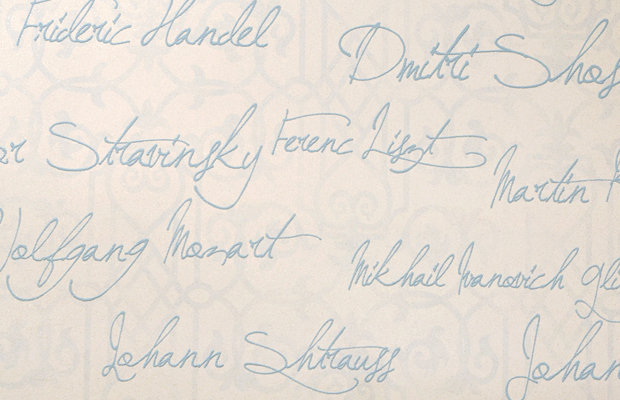 Frideric Handel
Dmitri Shos
ar Stravinsky Ferenc Liszt
Martin
Wolfgang Mozart
Mikhail Ivanovich Gli
Johann Shtrauss
Johan